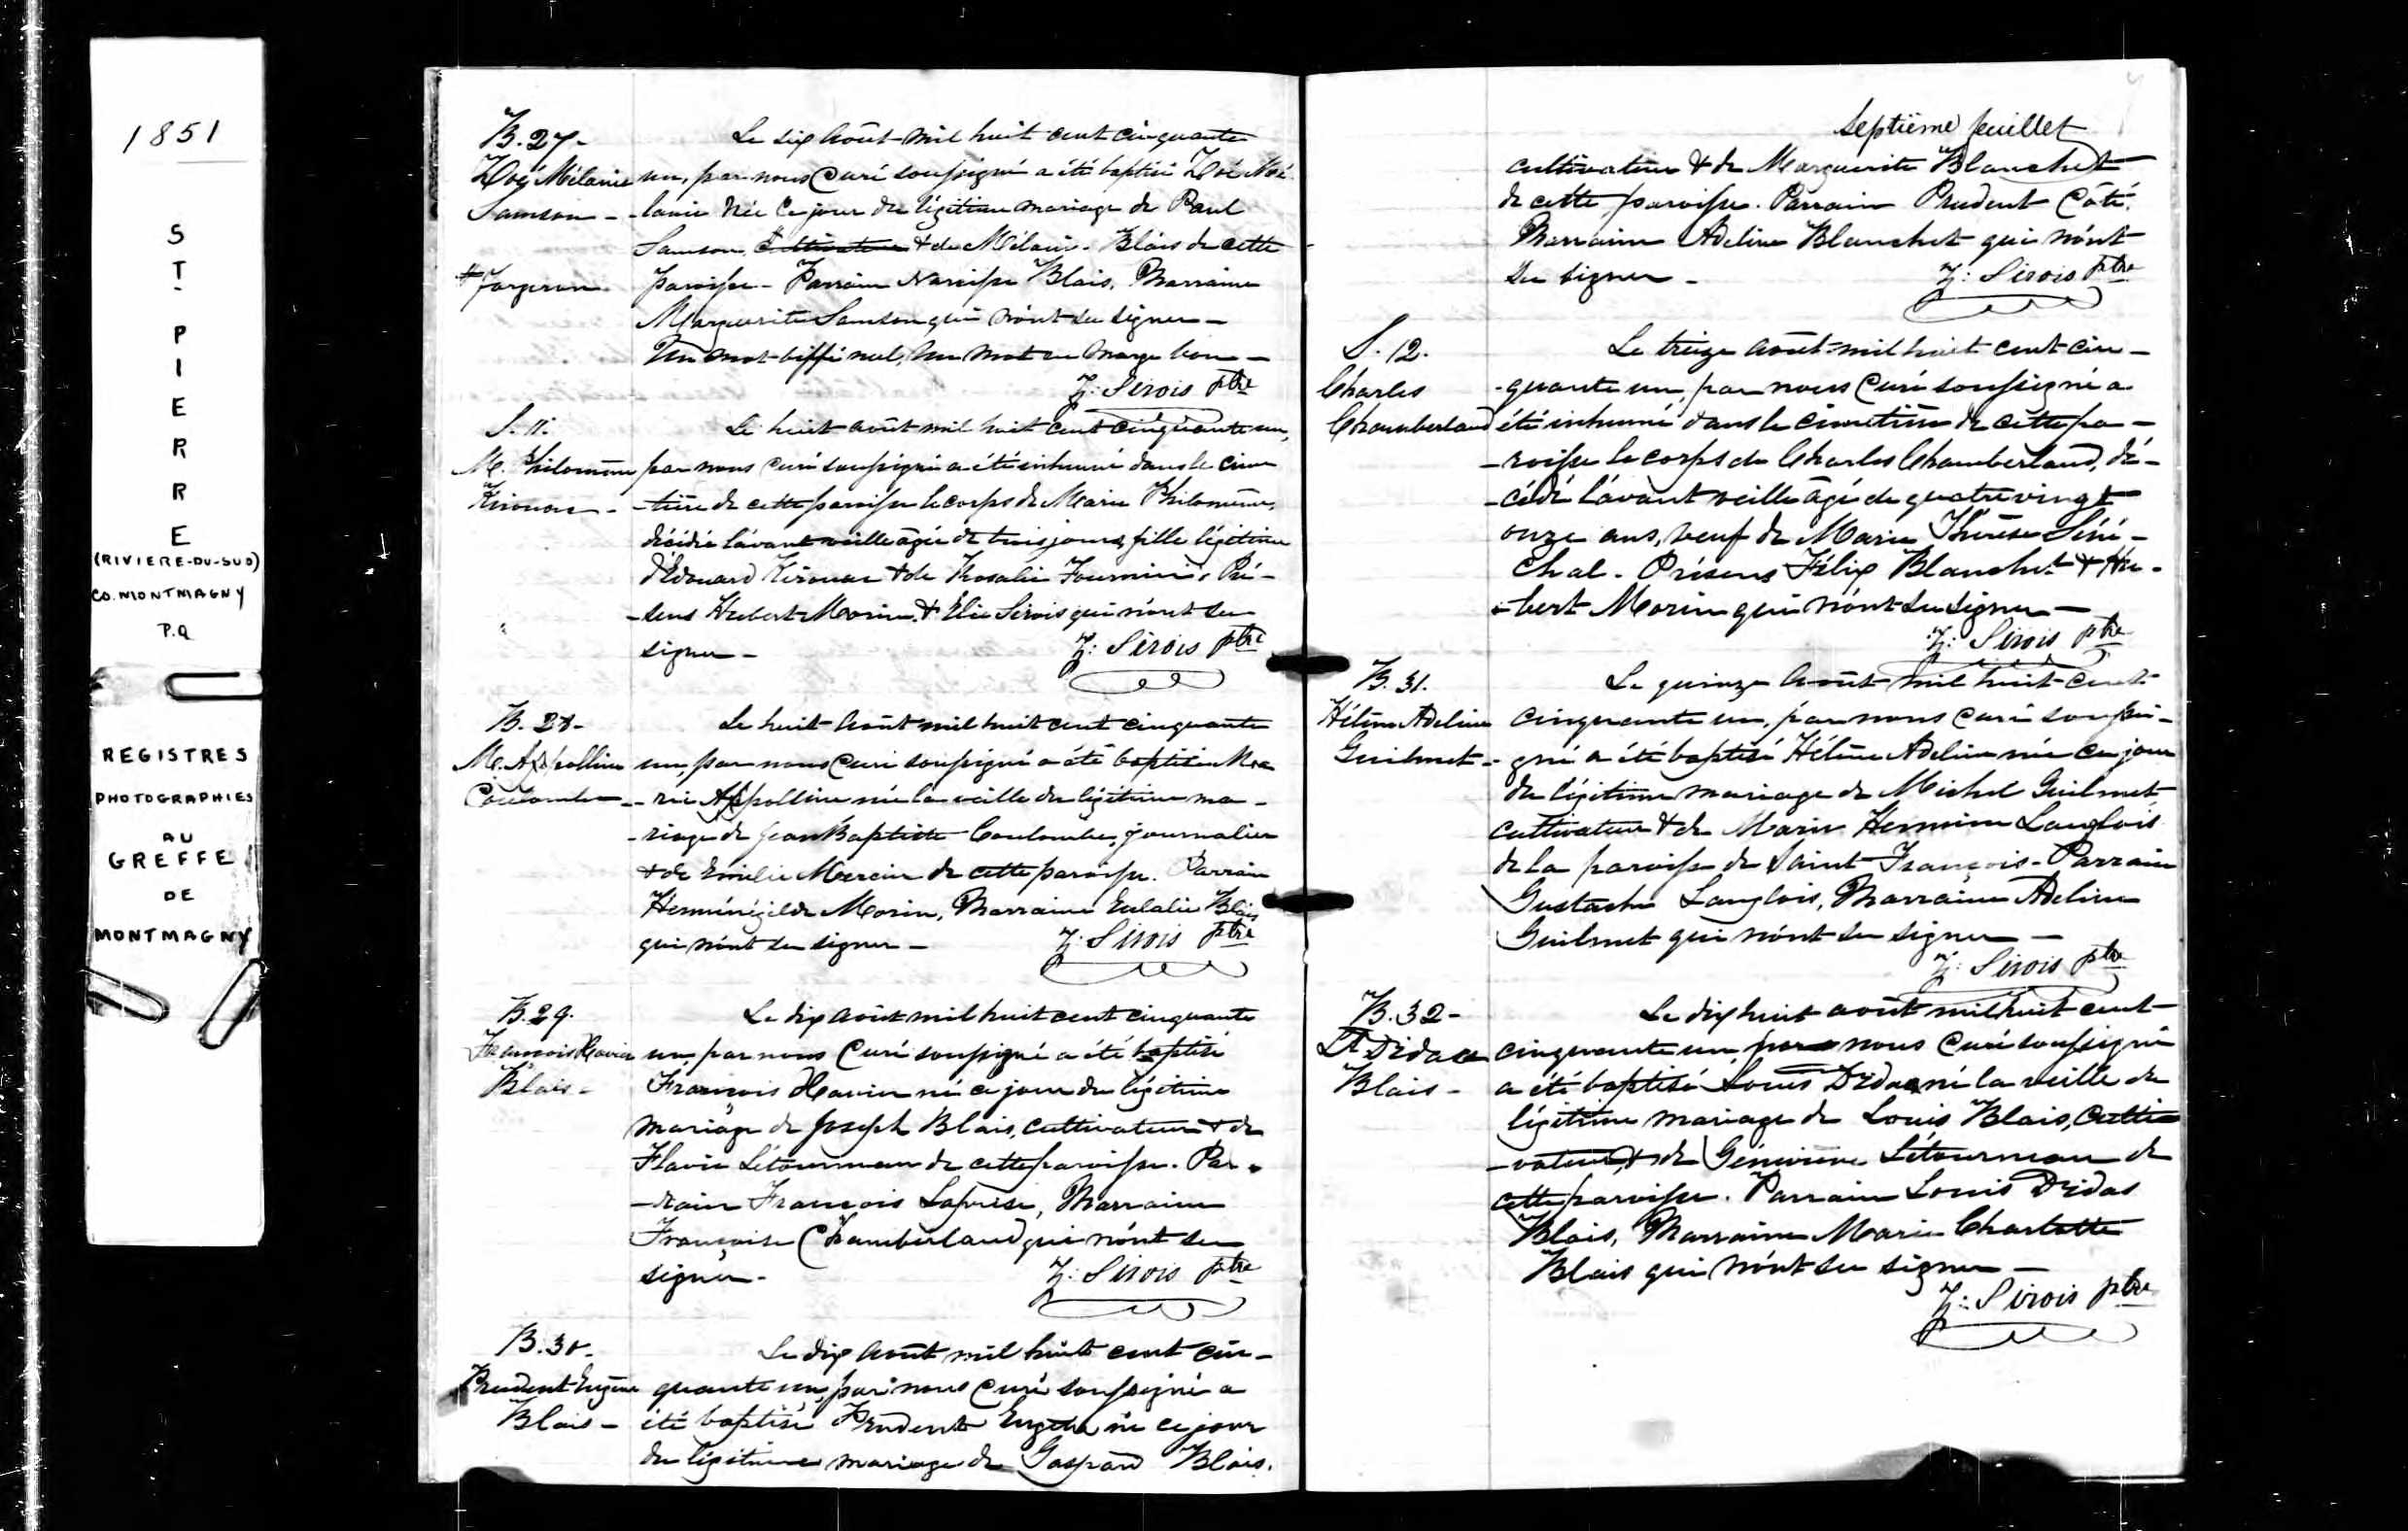 1851
ST. PIERRE
(RIVIERE-DU-SUD)
CO. MONTMAGNY
P.Q
REGISTRES
PHOTOGRAPHIES
AU
GREFFE
DE
MONTMAGNY
B. 27-
Zoé Mélanie
Samson -
# forgeron
Le six Août mil huit cent cinquante
un, par nous Curé soussigné a été baptisé Zoé Mé-
lanie née ce jour du légitime mariage de Paul
Samson, Cultivateur & de Mélanie Blais de cette
paroisse - Parrain Narcisse Blais, Marraine
Marguerite Samson qui n'ont su signer -
Un mot biffé nul, un mot en marge bon -
Z: Sirois ptre
S. 11.
M. Philomène
Kirouac -
Le huit août mil huit cent cinquante un,
par nous Curé soussigné a été inhumé dans le cime
-tière de cette paroisse le corps de Marie Philomène,
décédée l'avant veille agée de trois jours, fille légitime
d'Edouard Kirouac & de Rosalie Fournier. Pré-
-sens Hubert Morin & Elie Sirois qui n'ont su
signer -
Z: Sirois ptre
B. 28-
M. Appolline
Coulombe -
Le huit Août mil huit cent cinquante
un, par nous Curé soussigné a été baptisée Ma
-rie Appolline née la veille du légitime ma-
-riage de Jean Baptiste Coulombe, journalier
& de Emilie Mercier de cette paroisse. Parrain
Herménégilde Morin, Marraine Eulalie Blais
qui n'ont su signer -
Z: Sirois ptre
B. 29.
François Xavier
Blais -
Le dix Août mil huit cent cinquante
un, par nous Curé soussigné a été baptisé
François Xavier né ce jour du légitime
mariage de Joseph Blais, cultivateur & de
Flavie Létourneau de cette paroisse. Par-
-rain François Laprise, Marraine
Françoise Chamberland qui n'ont su
signer -
Z: Sirois ptre
B. 30-
Prudent Eugène
Blais -
Le dix Août mil huit cent cin-
quante un, par nous Curé soussigné a
été baptisé Prudent Eugène né ce jour
du légitime mariage de Gaspard Blais,
Septième feuillet
cultivateur & de Marguerite Blanchet
de cette paroisse. Parrain Prudent Côté,
Marraine Adeline Blanchet qui n'ont
su signer -
Z: Sirois ptre
S. 12.
Charles
Chamberland
Le treize août mil huit cent cin-
-quante un, par nous Curé soussigné a
été inhumé dans le cimetière de cette pa-
-roisse le corps de Charles Chamberland, dé-
-cédé l'avant veille âgé de quatre vingt
onze ans, veuf de Marie Thérèse Séné-
chal. Présens Félix Blanchet & Hu-
-bert Morin qui n'ont su signer -
Z: Sirois ptre
B. 31.
Hélène Adeline
Guilmet -
Le quinze Août mil huit cent
cinquante un, par nous Curé soussi-
gné a été baptisé Hélène Adeline née ce jour
du légitime mariage de Michel Guilmet
cultivateur & de Marie Hermine Langlois
de la paroisse de Saint François - Parrain
Gustache Langlois, Marraine Adeline
Guilmet qui n'ont su signer -
Z: Sirois ptre
B. 32-
Ls Didace
Blais -
Le dix huit août mil huit cent
cinquante un par nous Curé soussigné
a été baptisé Louis Didace né la veille du
légitime mariage de Louis Blais, Culti
-vateur, & de Géneviève Létourneau de
cette paroisse. Parrain Louis Didas
Blais, Marraine Marie Charlotte
Blais qui n'ont su signer -
Z: Sirois ptre